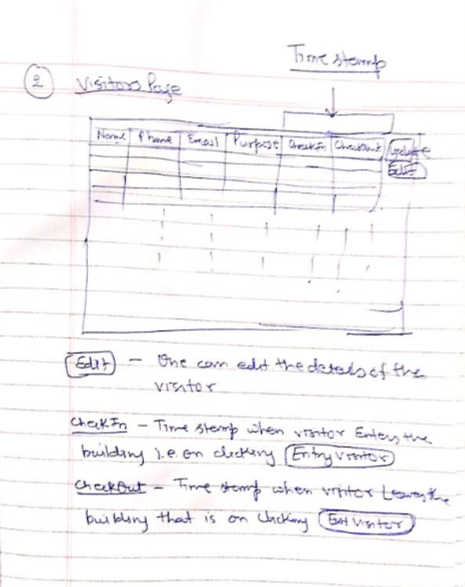 Time stamp
② Visitors Page
Name Phone Email Purpose CheckIn CheckOut Update
Edit
Edit - One can edit the details of the
visitor
CheckIn - Time stamp when visitor Enters the
building i.e. on clicking Entry visitor
CheckOut - Time stamp when visitor Leaves the
building that is on clicking Exit visitor